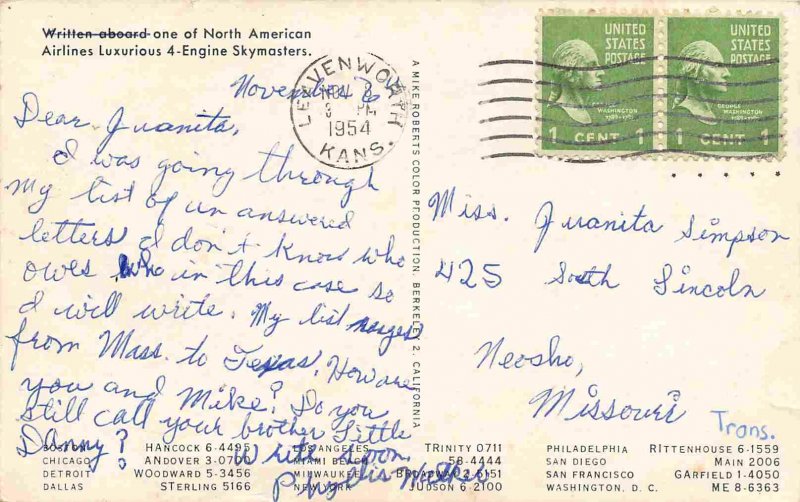 Written aboard one of North American
Airlines Luxurious 4-Engine Skymasters.
November 6
Dear Juanita,
I was going through
my list of un answered
letters I don't know who
owes who in this case so
I will write. My list ranges
from Mass. to Texas. How are
you and Mike? Do you
still call your brother Little
Danny?
Write soon
Phyllis
LEAVENWORTH
NOV
1954
KANS.
A MIKE ROBERTS COLOR PRODUCTION, BERKELEY 2, CALIFORNIA
UNITED
STATES
POSTAGE
WASHINGTON
1 CENT 1
UNITED
STATES
POSTAGE
GEORGE
WASHINGTON
CENT 1
Miss. Juanita Simpson
425 South Lincoln
Neosho,
Missouri
Trans.
BOSTON HANCOCK 6-4495
CHICAGO ANDOVER 3-0700
DETROIT WOODWARD 5-3456
DALLAS STERLING 5166
LOS ANGELES TRINITY 0711
MIAMI BEACH 58-4444
MILWAUKEE BROADWAY 2-6151
NEW YORK JUDSON 6-2100
PHILADELPHIA RITTENHOUSE 6-1559
SAN DIEGO MAIN 2006
SAN FRANCISCO GARFIELD 1-4050
WASHINGTON, D. C. ME 8-6363